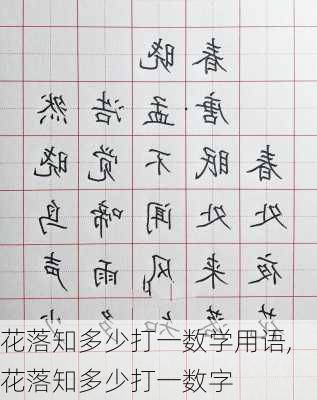 春晓
唐·孟浩然
春眠不觉晓
处处闻啼鸟
夜来风雨声
花落知多少
花落知多少打一数学用语,
花落知多少打一数字